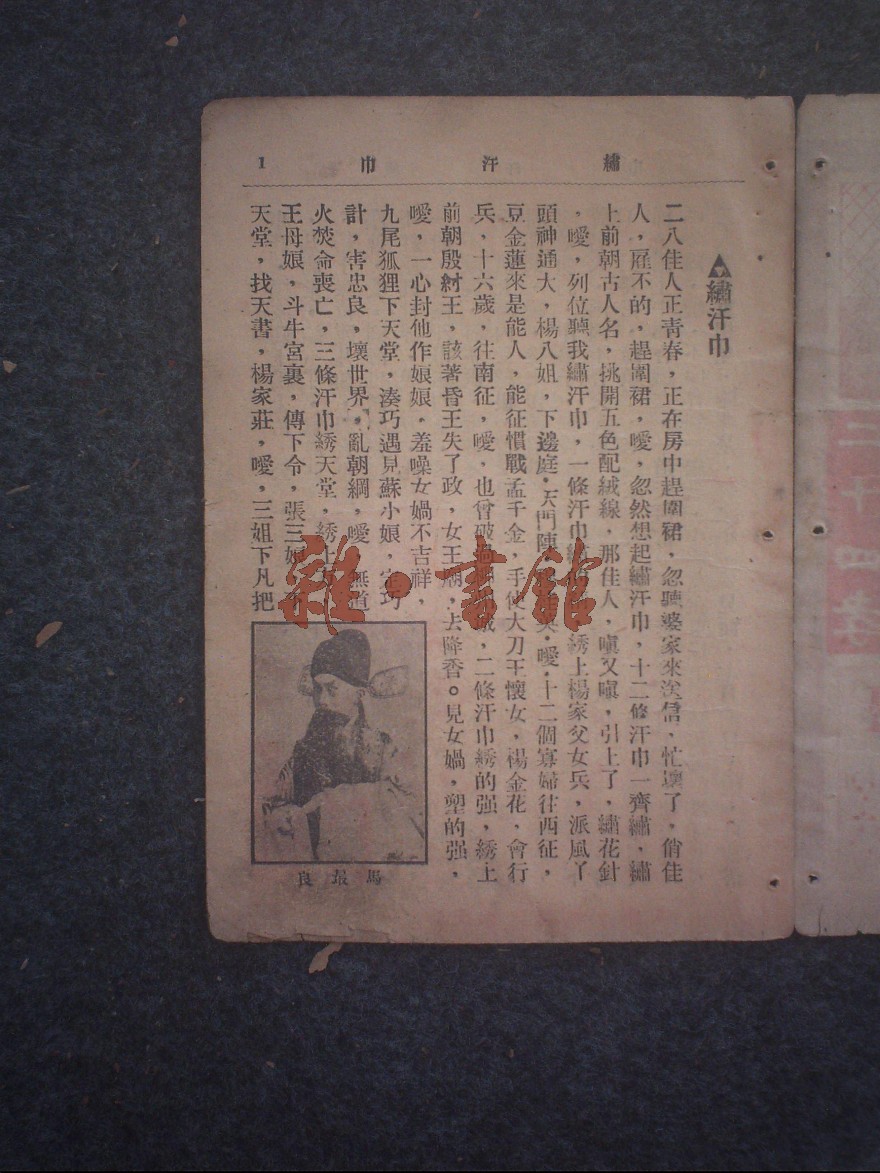 繡汗巾 1
▲繡汗巾
二八佳人正青春，正在房中趕圍裙，忽聽婆家來送信，忙壞了，俏佳
人，雇不的，趕圍裙，噯，忽然想起繡汗巾，十二條汗巾一齊繡，繡
上前朝古人名，挑開五色配絨線，那佳人，嗔又嗔，引上了，繡花針
，噯，列位聽我繡汗巾，一條汗巾 綉上楊家父女兵，派風丫
頭神通大，楊八姐，下邊庭，天門陣， 噯，十二個寡婦往西征，
豆金蓮來是能人，能征慣戰孟千金，手使大刀王懷女，楊金花，會行
兵，十六歲，往南征，噯，也曾破過 ，二條汗巾綉的强，綉上
前朝殷紂王，該著昏王失了政，女王廟，去降香。見女媧，塑的强，
噯，一心封他作娘娘，羞噪女媧不吉祥，
九尾狐狸下天堂，湊巧遇見蘇小娘， 巧
計，害忠良，壞世界，亂朝綱，噯，無道
火焚命喪亡，三條汗巾綉天堂，綉上
王母娘，斗牛宮裏，傳下令，張三 下
天堂，找天書，楊家莊，噯，三姐下凡把
馬最良
雜·書館
二十四孝